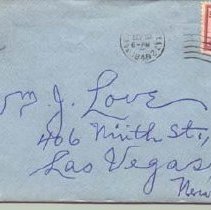 6-PM
Wm. J. Love
406 Ninth St.,
Las Vegas
New